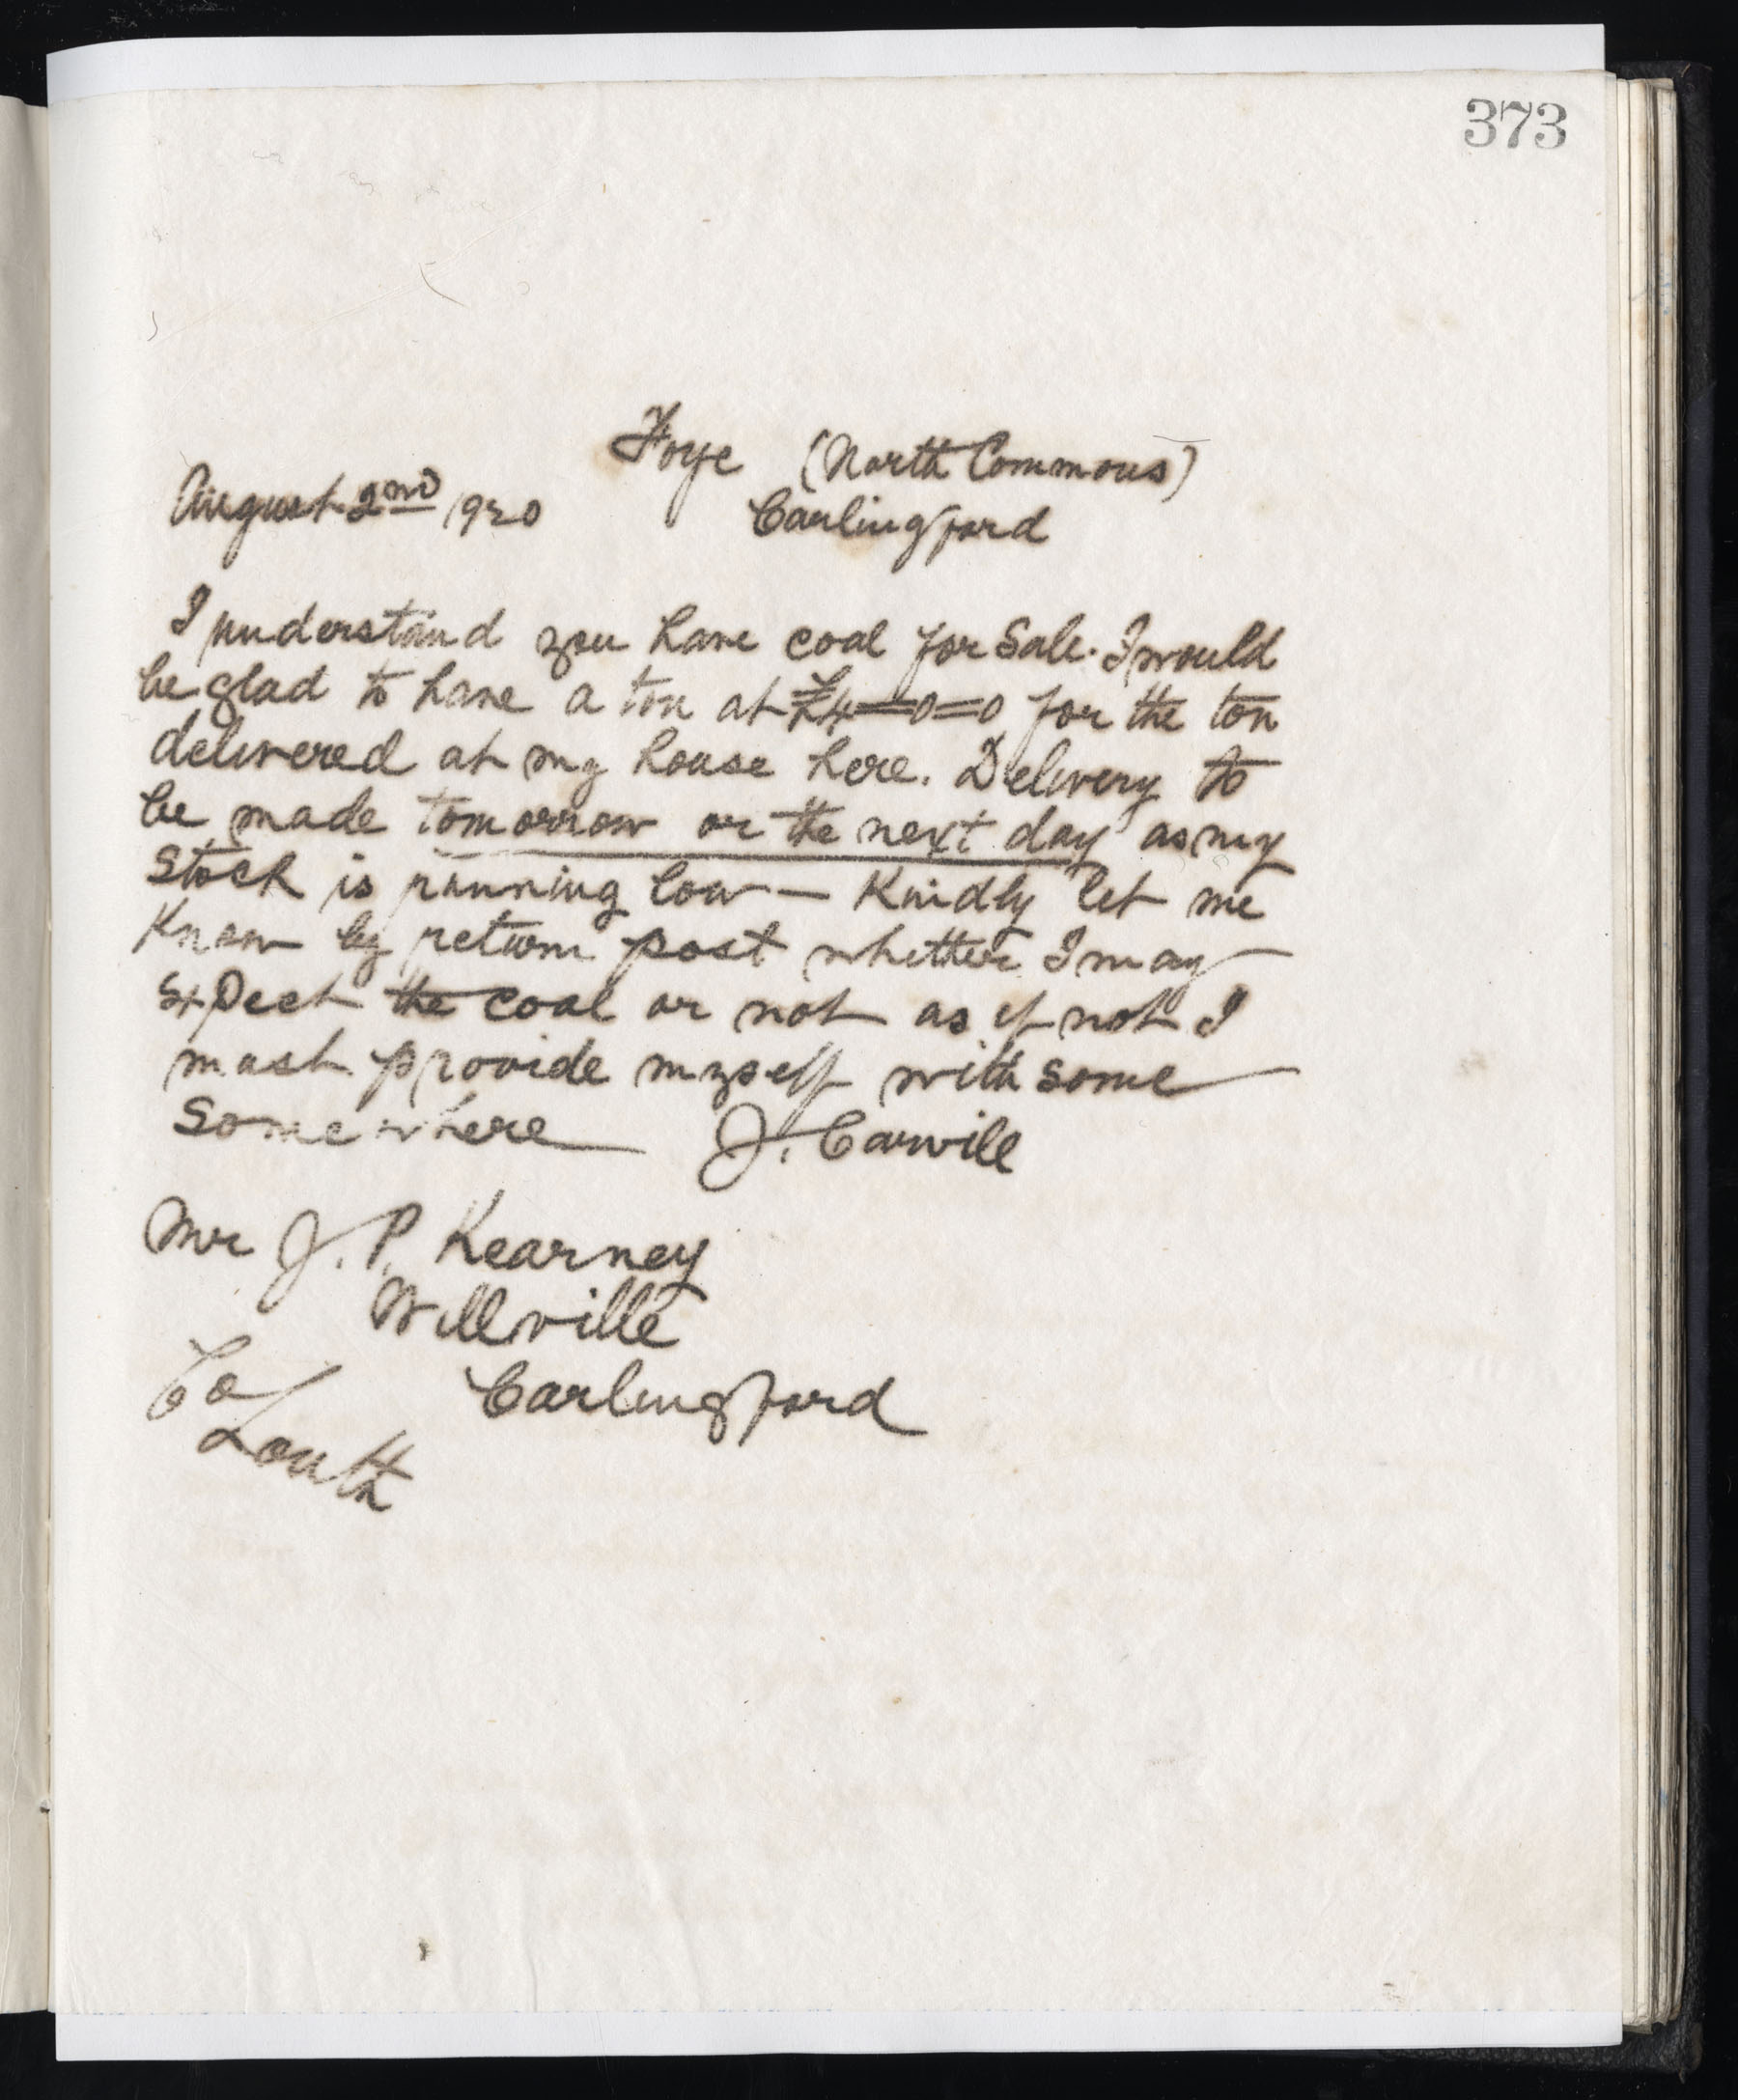 373
Foye (North Commons)
August 2nd 1920 Carlingford
I understand you have coal for Sale. I would
be glad to have a ton at £4=0=0 for the ton
delivered at my house here. Delivery to
be made tomorrow or the next day as my
Stock is running low — Kindly let me
Know by return post whether I may
Expect the coal or not as if not I
must provide myself with some
Somewhere J. Carvill
Mr J. P. Kearney
Willville
Co Carlingford
Louth